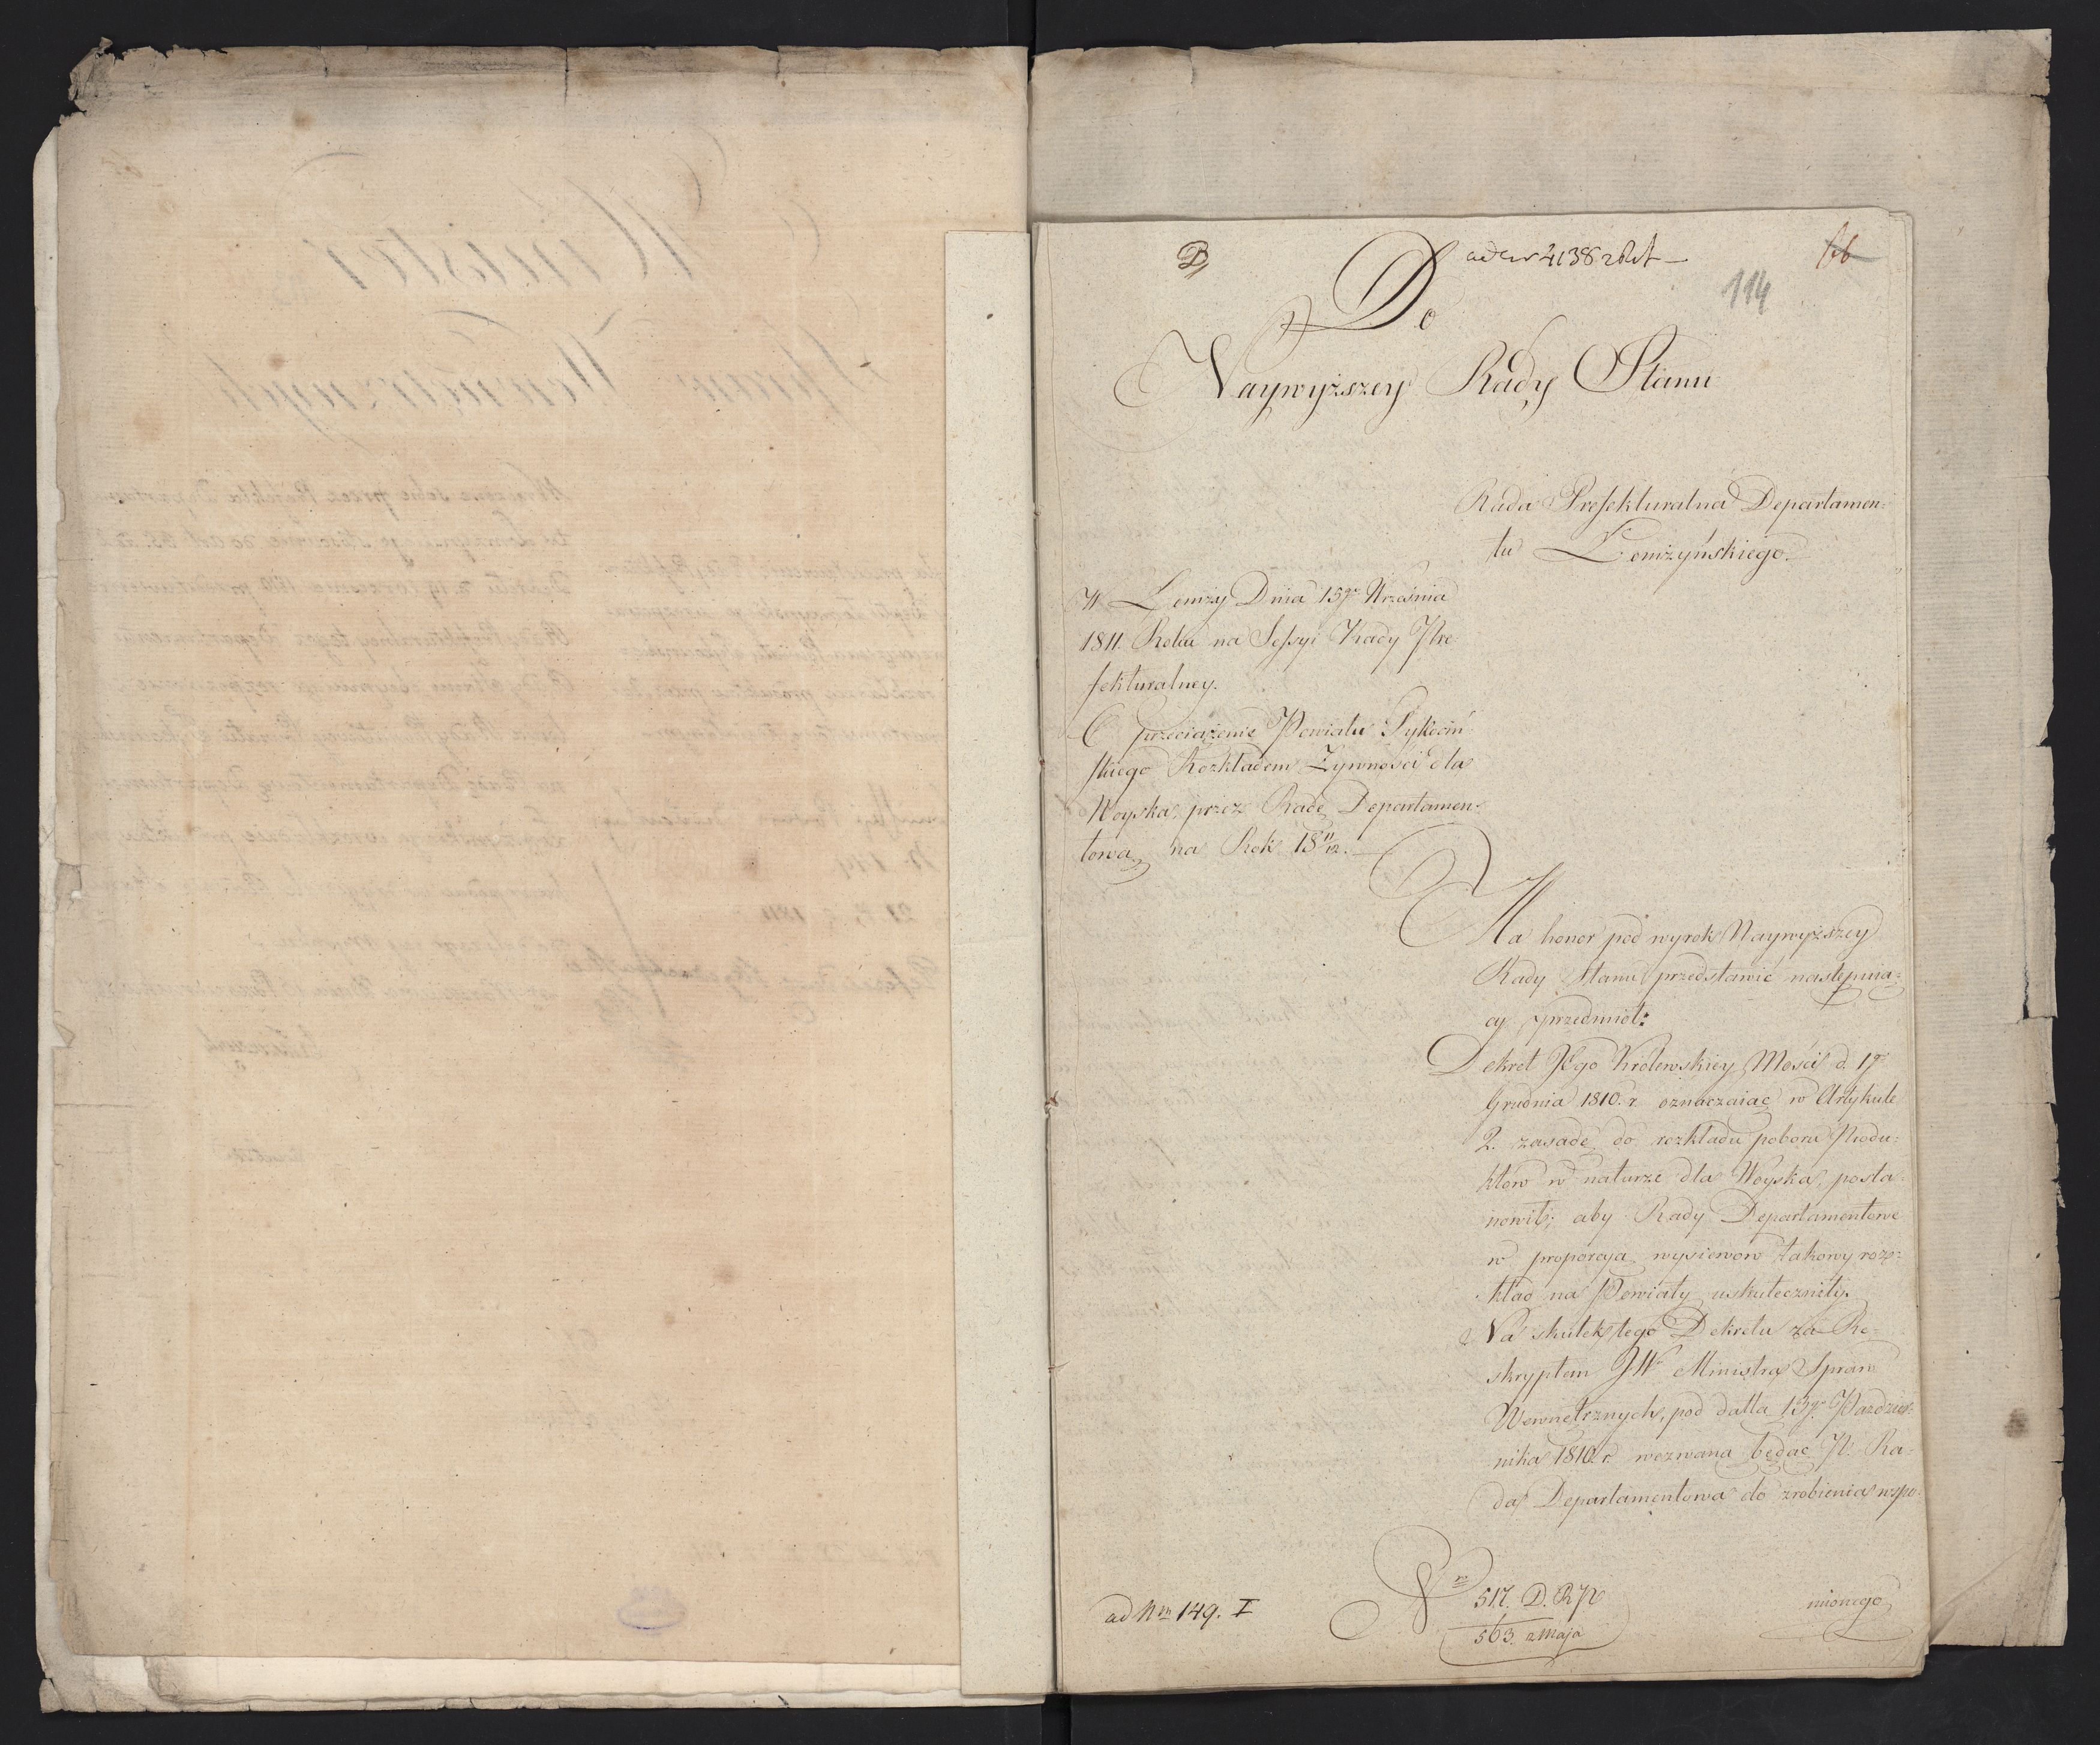 D
114
66
Do
Naywyższey Rady Stanu
Rada Prefekturalna Departamen-
tu Łomżyńskiego.
W Łomży Dnia 15go Września
1811. Roku na Sessyi Rady Pre
fekturalney.
O przeciążenie Powiatu Tykociń
skiego Rozkładem Żywności dla
Woyska przez Radę Departamen-
tową na Rok 18 11/12.
Ma honor pod wyrok Naywyższey
Rady Stanu przedstawić następuią-
cy przedmiot:
Dekret Jego Królewskiey Mości d. 1go
Grudnia 1810. r. oznaczaiąc w Artykule
2. zasadę do rozkładu poboru Produ-
któw w naturze dla Woyska, posta-
nowił; aby Rady Departamentowe
w proporcyą wysiewów takowy roz-
kład na Powiaty uskuteczniły.
Na skutek tego Dekretu za Re-
skryptem JW Ministra Spraw
Wewnętrznych, pod dattą 13go Paździer-
nika 1810. r. wezwana będąc P. Ra-
da Departamentowa do zrobienia wspo-
mionego
517. D. R P
563. z Maja
ad Nrm 149. I